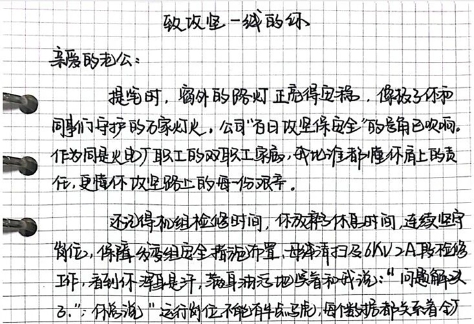 致攻坚一线的你
亲爱的老公：
提笔时，窗外的路灯正亮得安稳，像极了你和
同事们守护的万家灯火。公司“百日攻坚保安全”的号角已吹响。
作为同是火电厂职工的双职工家庭，我比谁都懂你肩上的责
任，更懂你攻坚路上的每一份艰辛。
还记得机组检修时间，你放弃了休息时间，连续坚守
岗位，保障机组安全措施布置、母线清扫及6KV 2A段检修
工作，看到你浑身是汗，满身油污地笑着和我说：“问题解决
了。”；你总说“运行岗位不能有半点马虎，每个数据都关系着全厂